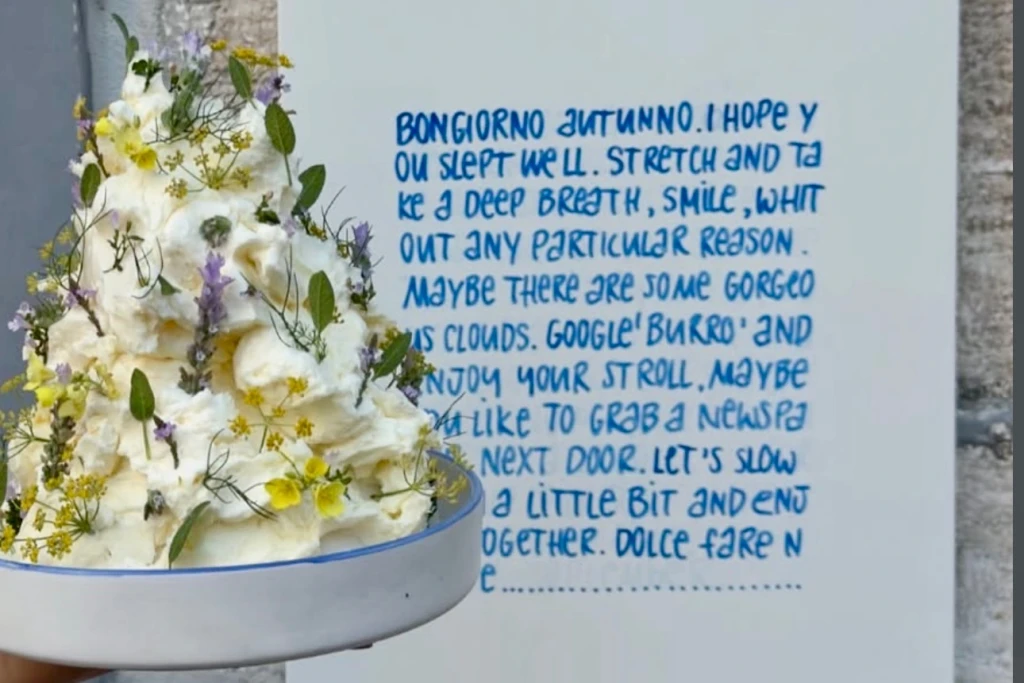 BONGIORNO AUTUNNO. I HOPE Y
OU SLEPT WELL. STRETCH AND TA
KE A DEEP BREATH, SMILE, WHIT
OUT ANY PARTICULAR REASON.
MAYBE THERE ARE SOME GORGEO
US CLOUDS. GOOGLE 'BURRO' AND
NJOY YOUR STROLL, MAYBE
U LIKE TO GRAB A NEWSPA
NEXT DOOR. LET'S SLOW
A LITTLE BIT AND ENJ
OGETHER. DOLCE FARE N
E..............................